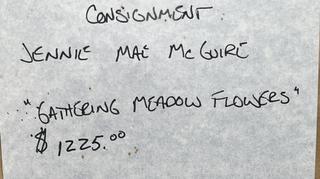 CONSIGNMENT
JENNIE MAE MCGUIRE
"GATHERING MEADOW FLOWERS"
$1225.00